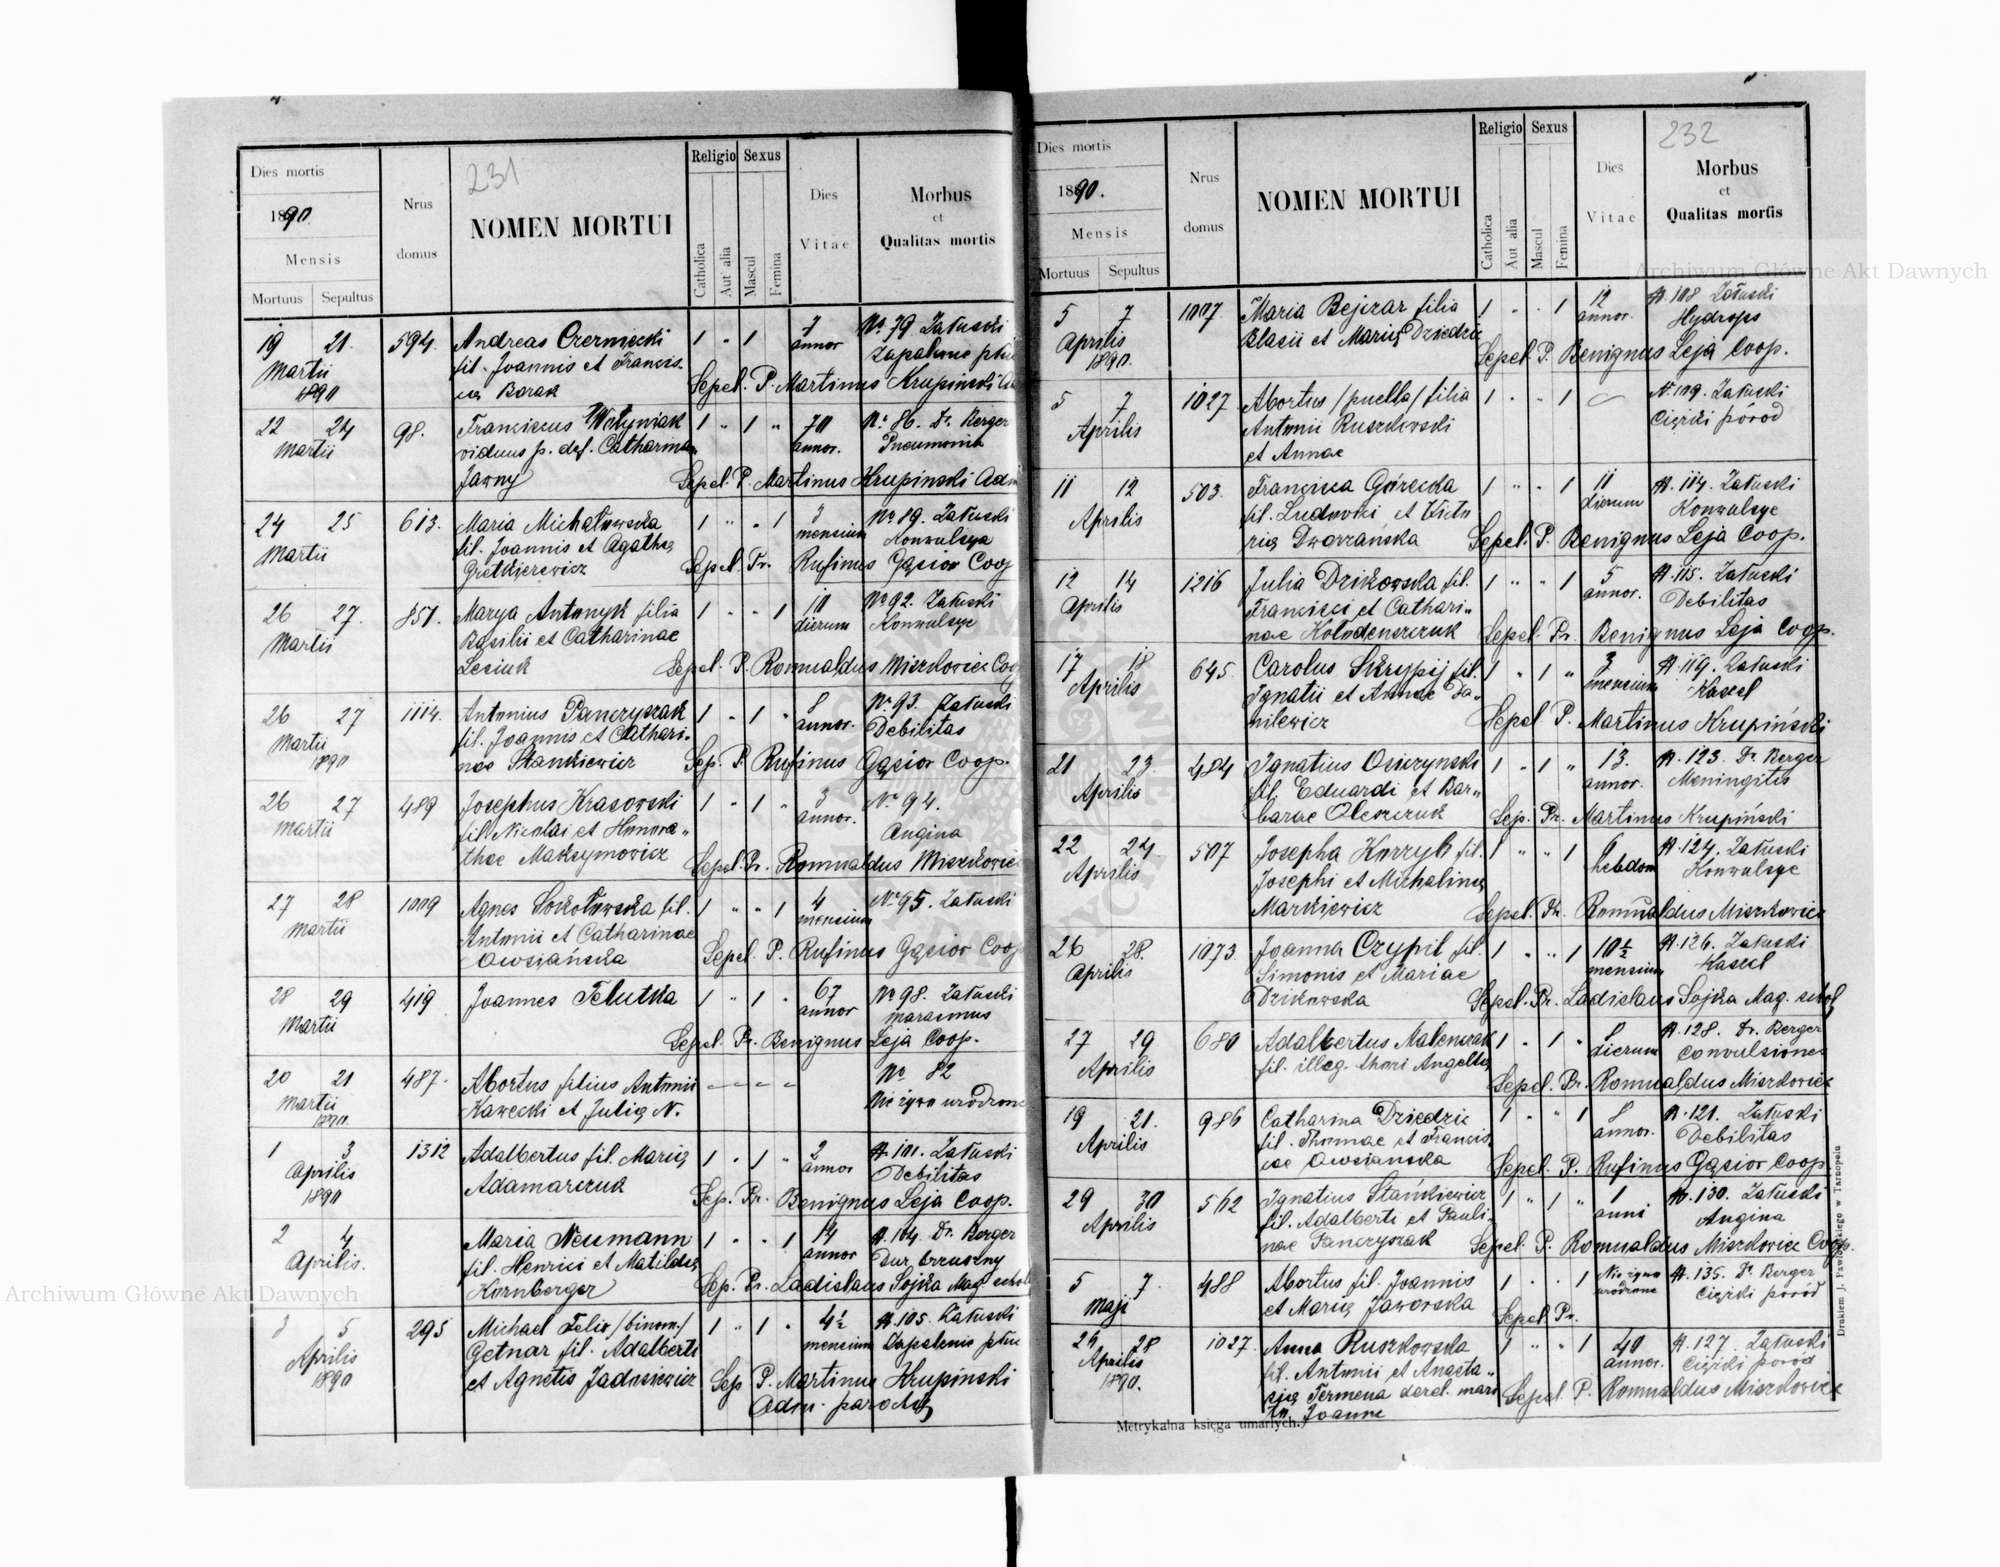 231
Dies mortis
1890.
Mensis
Mortuus Sepultus
Nrus domus
NOMEN MORTUI
Religio Sexus
Catholica Aut alia Mascul Femina
Dies Vitae
Morbus
et
Qualitas mortis
19 21. 594. Andreas Czerniecki 1 " 1 7 No 79 Załuski
Martii fil. Joannis et Francis- annor Zapalenie płuc
1890 cae Borak Sepel. P. Martinus Krupiński
22 24 98. Franciscus Wołyniak 1 " 1 " 70 No 86. Dr. Berger
Martii viduus p. def. Catharina annor. Pneumonia
Jawny Sepel. P. Martinus Krupinski Adm
24 25 613. Maria Michałowska 1 " " 1 3 No 89. Załuski
Martii fil. Joannis et Agathae mensium Konwulsye
Sepel. Fr. Rufinus Gąsior Coop
26 27. 851. Marya Antonyk filia 1 " " 1 10 No 92. Załuski
Martii Basilii et Catharinae dierum Konwulsye
Lesiuk Sepel. P. Romualdus Miszkowicz Coop
26 27 1114. Antonius Panczyszak 1 " 1 " No 93. Załuski
Martii fil. Joannis et Cathari- annor. Debilitas
1890 nae Stankiewicz Sep. P. Rufinus Gąsior Coop.
26 27 489 Josephus Krasowski 1 " 1 " 3 No 94.
Martii fil. Nicolai et Honora- annor. Angina
thae Maksymowicz Sepel. Pr. Romualdus Miszkowicz
27 28 1009 Agnes Sokołowska fil. 1 " " 1 4 No 95. Załuski
Martii Antonii et Catharinae mensium
Owsiańska Sepel. P. Rufinus Gąsior Coop
28 29 419 Joannes Telutka 1 " 1 " 67 No 98. Załuski
Martii annor Marasmus
Sepel. Pr. Benignus Leja Coop.
20 21 487. Abortus filius Antonii No 82
Martii Kawecki et Juliae N. Nie żywo urodzone
1890.
1 3 1312 Adalbertus fil. Mariae 1 " 1 " 2 N. 101. Załuski
Aprilis Adamarczuk annor Debilitas
1890 Sep. Pr. Benignus Leja Coop.
2 4 Maria Neumann 1 " " 1 14 N. 104. Dr. Berger
Aprilis. fil. Henrici et Matildae annor Dur brzuszny
Kornberger Sep. Pr. Ladislaus Sojka Mag. schol
3 5 295 Michael Felix /binom./ 1 " 1 " 4½ N. 105. Załuski
Aprilis Getnar fil. Adalberti mensium Zapalenie płuc
1890 et Agnetis Jadusiewicz Sep P. Martinus Krupiński
Adm. parochiae
232
Dies mortis
1890.
Mensis
Mortuus Sepultus
Nrus domus
NOMEN MORTUI
Religio Sexus
Catholica Aut alia Mascul Femina
Dies Vitae
Morbus
et
Qualitas mortis
5 7 1007. Maria Bejzar filia 1 " " 1 12 N. 108 Załuski
Aprilis Blasii et Mariae Dziedzic annor. Hydrops
1890. Sepel. P. Benignus Leja Coop.
5 7 1027 Abortus /puella/ filia 1 " " 1 N. 109. Załuski
Aprilis Antonii Ruszkowski Ciężki poród
et Annae
11 12 503. Francisca Górecka 1 " " 1 11 N. 114. Załuski
Aprilis fil. Ludovici et Victo dierum Konwulsye
riae Dworzańska Sepel. P. Benignus Leja Coop.
12 14 1216 Julia Dzikowska fil. 1 " " 1 5 N. 115. Załuski
Aprilis Francisci et Cathari- annor. Debilitas
nae Sepel. Pr. Benignus Leja Coop.
17 18 645. Carolus Skrypij fil. 1 " 1 " 3 N. 119. Załuski
Aprilis Ignatii et Annae Da- mensium Kaszel
nilewicz Sepel P. Martinus Krupiński
21 23. 484 Ignatius Osiczynski 1 " 1 " 13. N. 123. Dr. Berger
Aprilis fil. Eduardi et Bar- annor. Meningitis
barae Oleszczuk Sep. Pr. Martinus Krupiński
22 24. 507 Josepha fil. 1 " " 1 6 N. 124. Załuski
Aprilis Josephi et Michalinae hebdom Konwulsye
Markiewicz Sepel. Pr. Romualdus Miszkowicz
26 28. 1073. Joanna Czypil fil. 1 " " 1 10½ N. 126. Załuski
Aprilis Simonis et Mariae mensium Kaszel
Dzikowska Sepel. Pr. Ladislaus Sojka Mag. schol
27 29 680 Adalbertus 1 " 1 " N. 128. Dr. Berger
Aprilis fil. illeg. thori Angellae dierum Convulsiones
Sepel. Pr. Romualdus Miszkowicz
19 21. 986 Catharina Dziedzic 1 " " 1 N. 121. Załuski
Aprilis fil. Thomae et Francis annor. Debilitas
cae Owsianska Sepel. P. Rufinus Gąsior Coop.
29 30 562 Ignatius Stańkiewicz 1 " 1 " 1 N. 130. Załuski
Aprilis fil. Adalberti et Pauli- anni Angina
nae Panczyszak Sepel. P. Romualdus Miszkowicz Coop.
5 7. 488 Abortus fil. Joannis 1 " " 1 Nie żywo N. 135. Dr. Berger
Maji et Mariae Jaworska urodzone Ciężki poród
Sepel Pr.
26 28 1027. Anna Ruszkowska 1 " " 1 40 N. 127. Załuski
Aprilis fil. Antonii et Anasta- annor. Ciężki poród
1890. siae Termena derel. mari
to Joanne Sepel P. Romualdus Miszkowicz
Metrykalna księga umarłych.
Drukiem J. Pawłowskiego w Tarnopolu
Archiwum Główne Akt Dawnych
Archiwum Główne Akt Dawnych